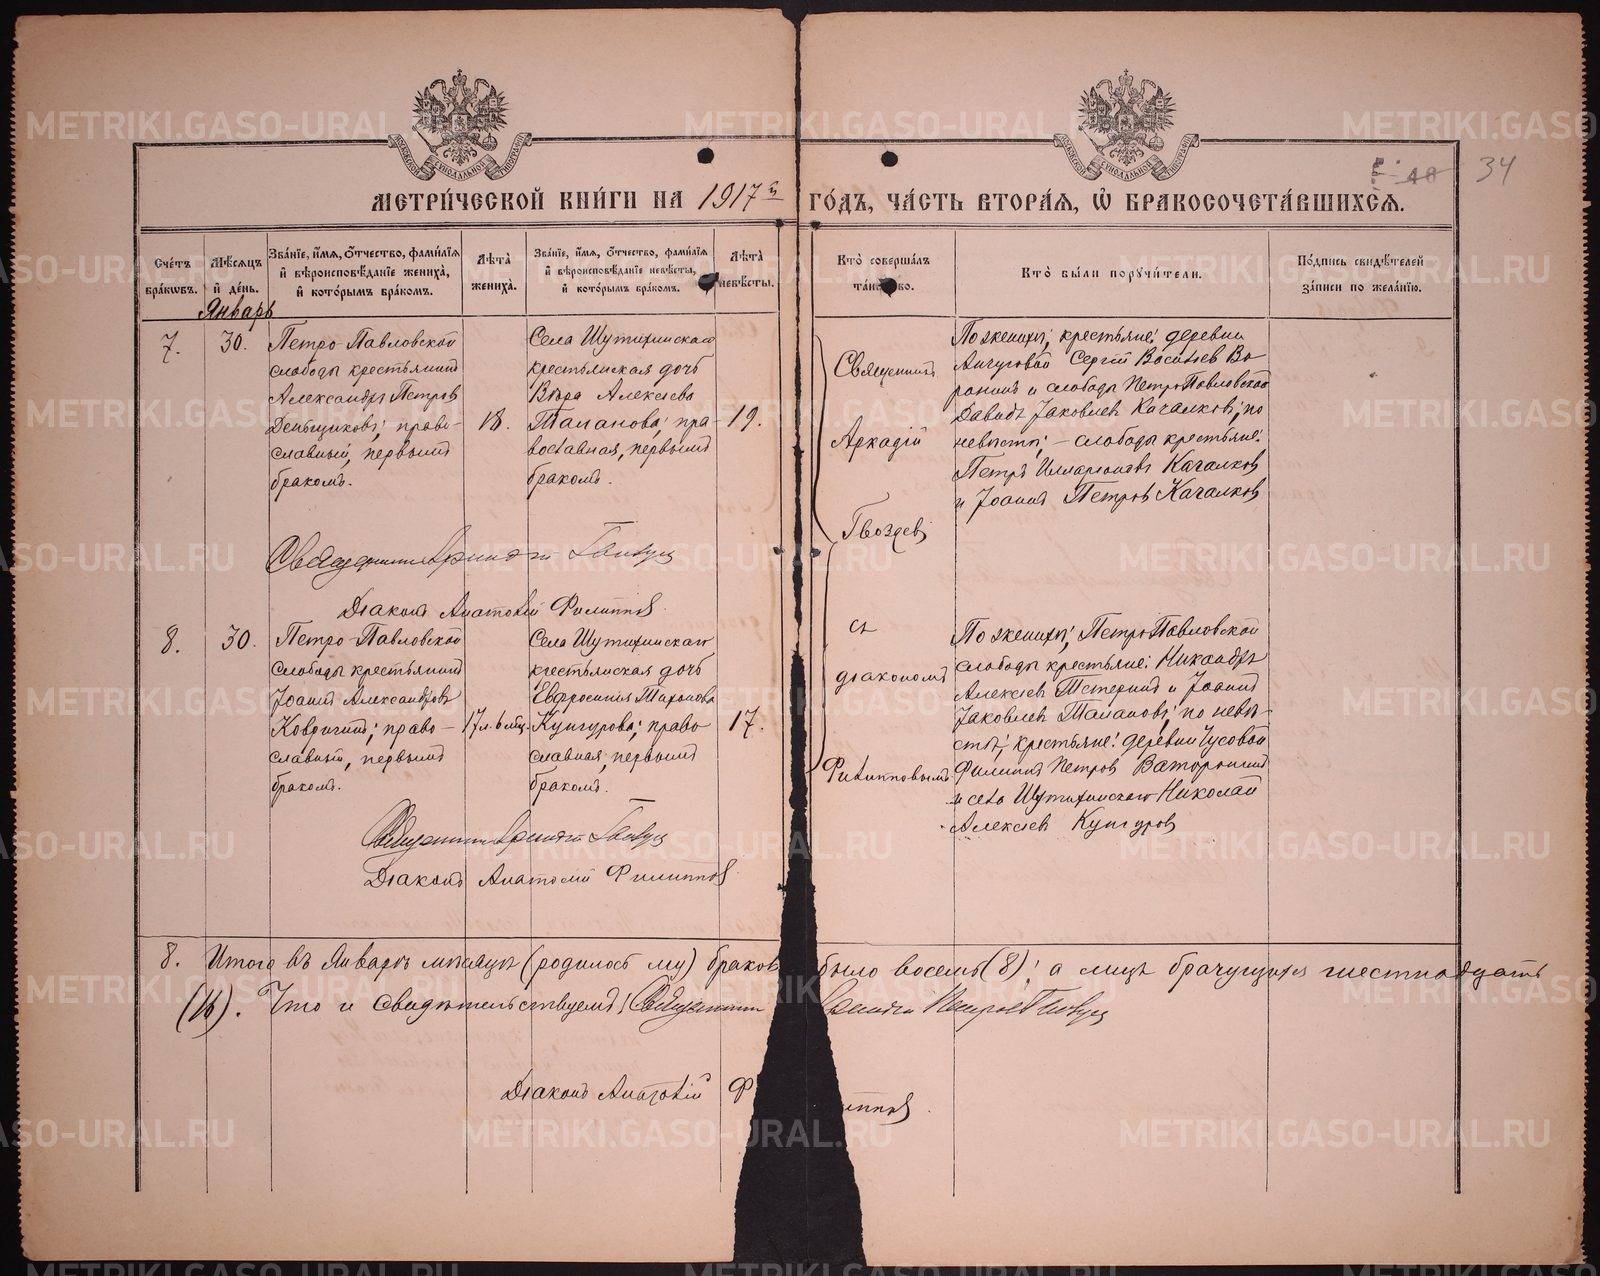 МЕТРИЧЕСКОЙ КНИГИ НА 1917й ГОДЪ, ЧАСТЬ ВТОРАЯ, Ѡ БРАКОСОЧЕТАВШИХСЯ.
40 34
Счетъ браковъ.
Мѣсяцъ и день.
Званіе, имя, отчество, фамилія и вѣроисповѣданіе жениха, и которымъ бракомъ.
Лѣта жениха.
Званіе, имя, отчество, фамилія и вѣроисповѣданіе невѣсты, и которымъ бракомъ.
Лѣта невѣсты.
Кто совершалъ таинство.
Кто были поручители.
Подпись свидѣтелей записи по желанію.
Январь
7.
30.
Петро-Павловской
слободы крестьянинъ
Александръ Петровъ
Деньщиковъ; право-
славный, первымъ
бракомъ.
18.
Села Шутихинскаго
крестьянская дочь
Вѣра Алексѣева
Таланова; пра-
вославная, первымъ
бракомъ.
19.
Священникъ
Аркадій
Гвоздевъ
съ
діакономъ
Филипповымъ
По женихѣ; крестьяне: деревни
Анчуговой Сергій Васильевъ Во-
ронинъ и слободы Петро-Павловской
Давидъ Іаковлевъ Качалковъ; по
невѣстѣ; – слободы крестьяне:
Петръ Илларіоновъ Качалковъ
и Іоаннъ Петровъ Качалковъ
Священникъ Аркадій Гвоздевъ
Діаконъ Анатолій Филипповъ.
8.
30.
Петро-Павловской
слободы крестьянинъ
Іоаннъ Александровъ
Ковригинъ; право-
славный, первымъ
бракомъ.
17 л. 6 мѣц.
Села Шутихинскаго
крестьянская дочь
Евфросинія Тихонова
Кунгурова; право-
славная, первымъ
бракомъ.
17.
По женихѣ; Петро-Павловской
слободы крестьяне: Никандръ
Алексѣевъ Тетеринъ и Іоаннъ
Іаковлевъ Талановъ; по невѣ-
стѣ; крестьяне: деревни Чусовой
Филиппъ Петровъ Ваторопинъ
и села Шутихинскаго Николай
Алексѣевъ Кунгуровъ
Священникъ Аркадій Гвоздевъ
Діаконъ Анатолій Филипповъ
8. Итого въ Январѣ мѣсяцѣ (родилось му) браковъ было восемь (8); а лицъ брачущихся шестнадцать
(16). Что и свидѣтельствуемъ: Священникъ Аркадій Петровъ Гвоздевъ
Діаконъ Анатолій Филипповъ.
METRIKI.GASO-URAL.RU